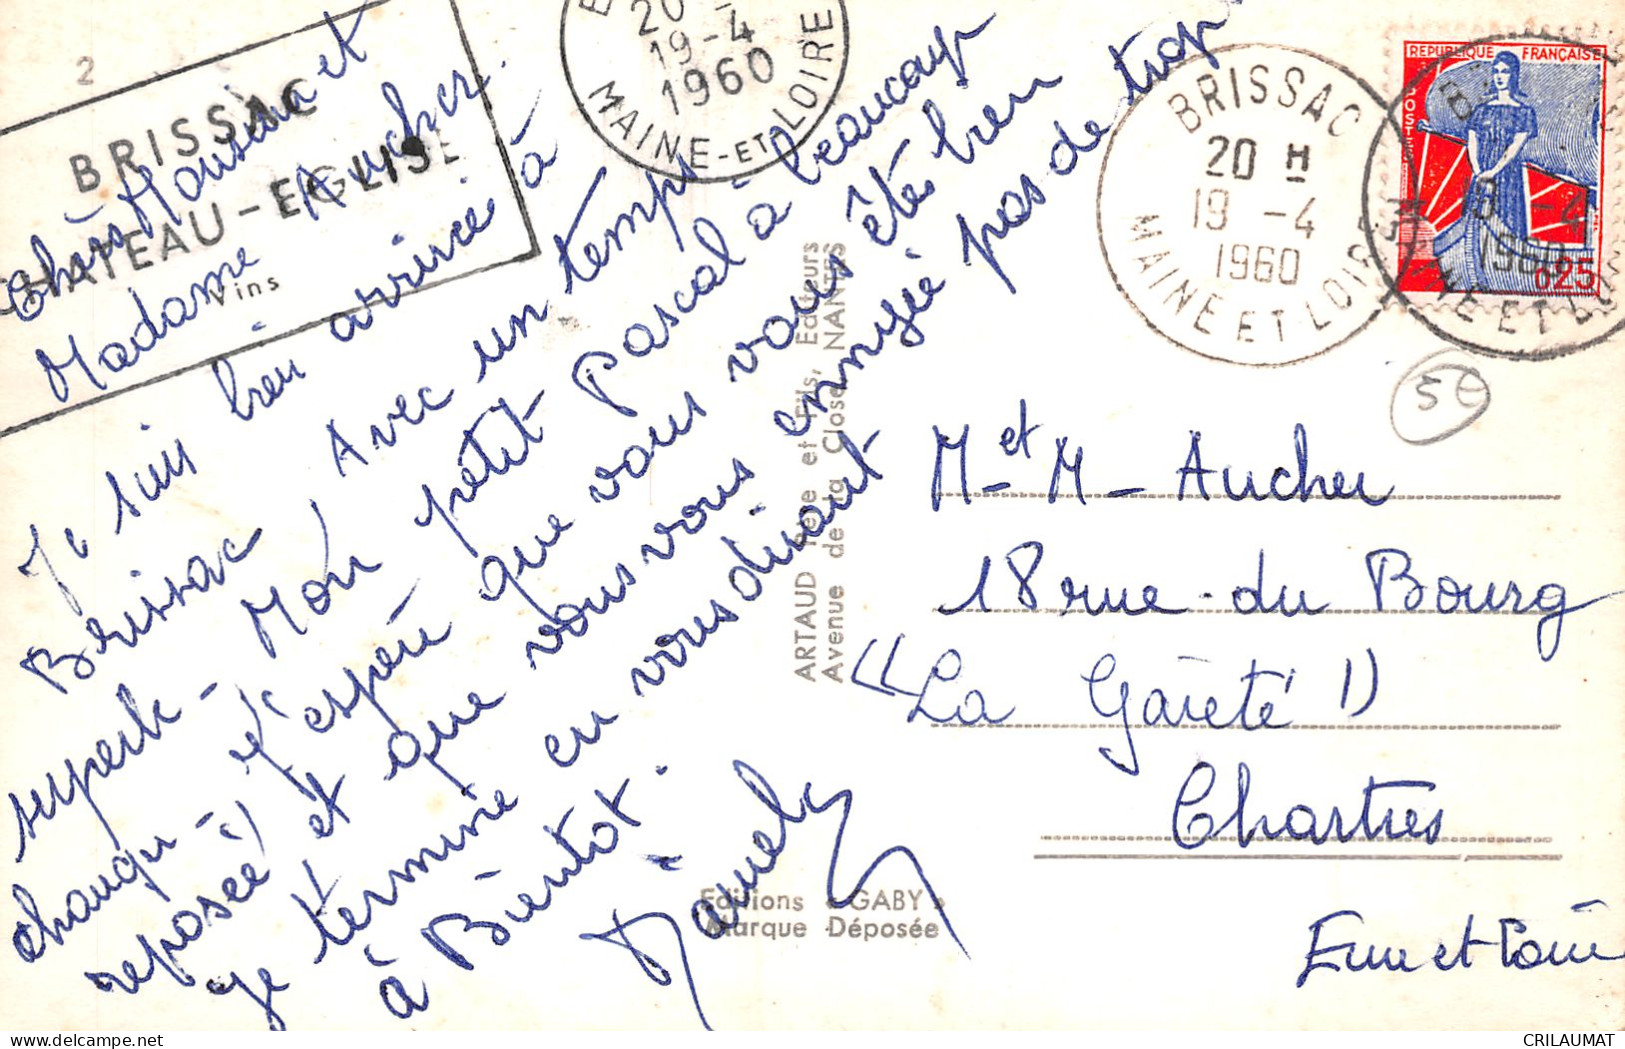 2
BRISSAC
CHATEAU-EGLISE
Vins
20
19-4
1960
MAINE-ET-LOIRE
BRISSAC
20 H
19 -4
1960
MAINE ET LOIRE
REPUBLIQUE FRANÇAISE
POSTES
0,25
5€
Chèrs Monsieur et
Madame Aucher.
Je suis bien arrivée à
Brissac Avec un temps
superbe - Mon petit Pascal a beaucoup
changé - J'espère que vous vous êtes bien
reposée et que vous vous ennuyé pas de trop
Je termine en vous disant
à Bientot.
ARTAUD Père et Fils, Editeurs
Avenue de la Close NANTES
Editions « GABY »
Marque Déposée
M- et M- Aucher
18 rue du Bourg
"La Gaieté"
Chartres
Eure et Loir
CRILAUMAT